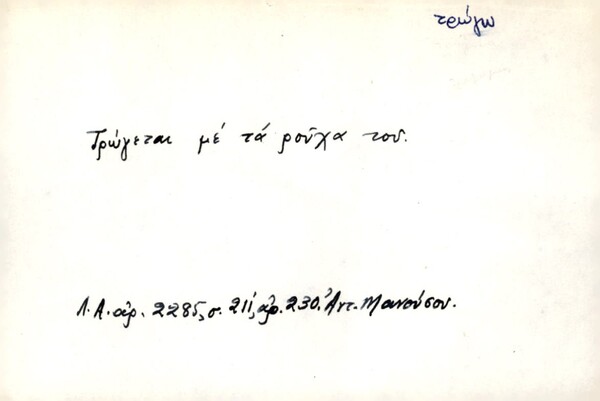 τρώγω
Τρώγεται μέ τά ροῦχα του.
Λ.Α. ἀρ. 2285, σ. 211, ἀρ. 230. Ἀντ. Μανούσου.